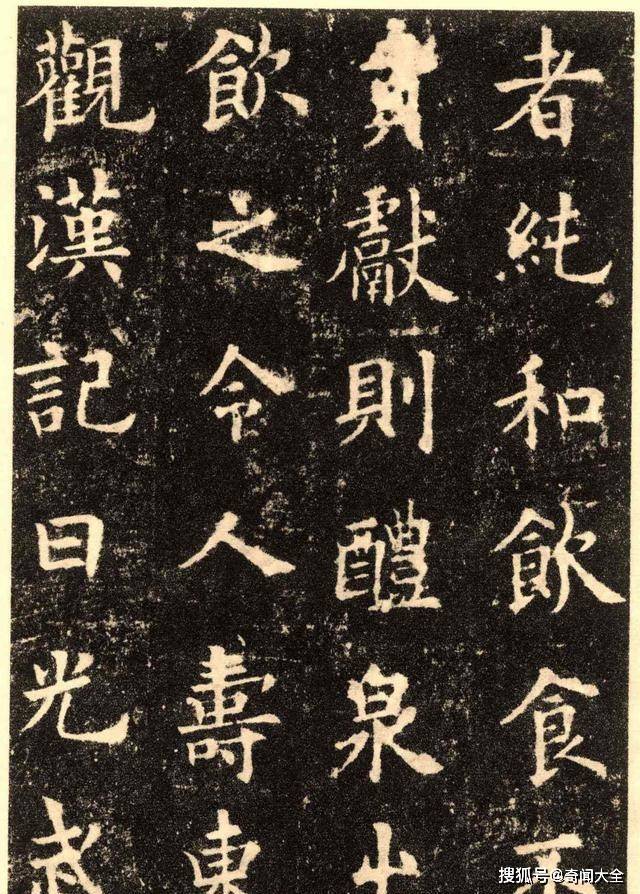 者純和飲食不
貢獻則醴泉出
飲之令人壽東
觀漢記曰光武
搜狐号@奇闻大全